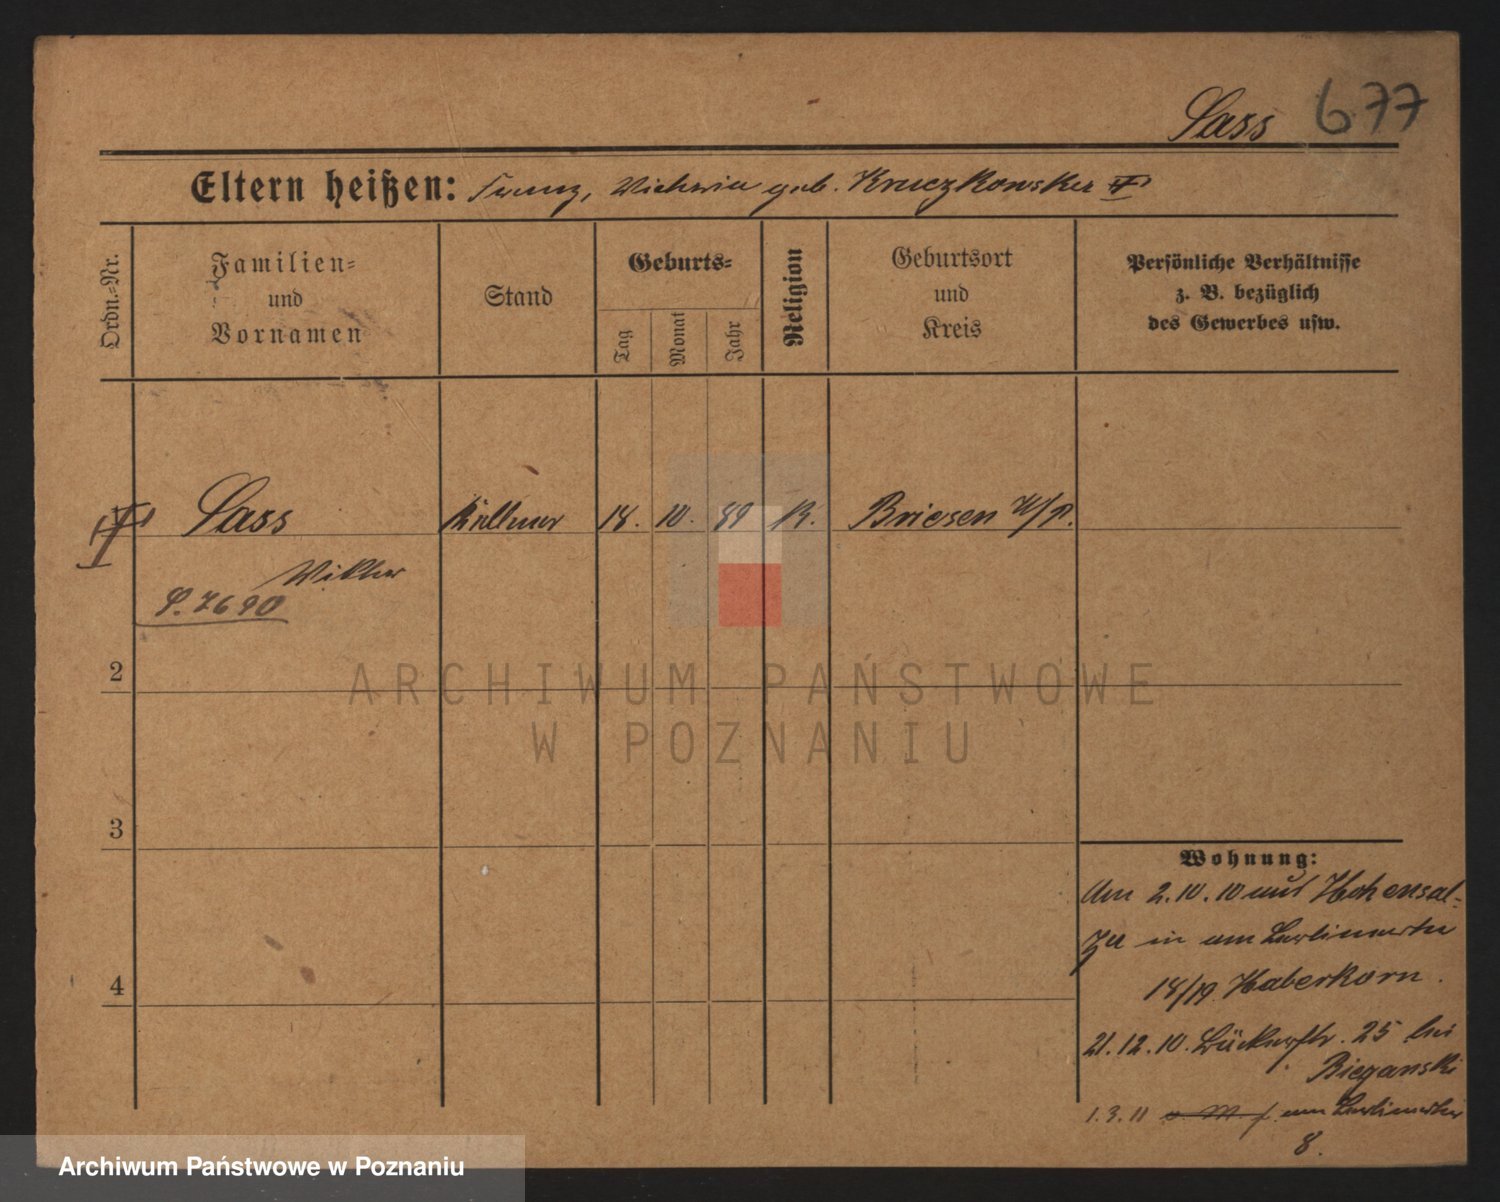 Sass 677
Eltern heißen: Franz, Viktoria geb. Kruczkowska
Ordn.=Nr.
Familien=
und
Vornamen
Stand
Geburts=
Tag
Monat
Jahr
Religion
Geburtsort
und
Kreis
Persönliche Verhältnisse
z. B. bezüglich
des Gewerbes usw.
Sass Kellner 18. 10. 89 K. Briesen W/P.
Viktor
P. 7690
2
3
4
Wohnung:
Am 2.10.10 aus Hohensal=
za in am Berlinertor
18/19 Haberkorn.
21.12.10. Bäckerstr. 25 bei
Bieganski
1.3.11 am Berlinertor
8.
ARCHIWUM PAŃSTWOWE
W POZNANIU
Archiwum Państwowe w Poznaniu